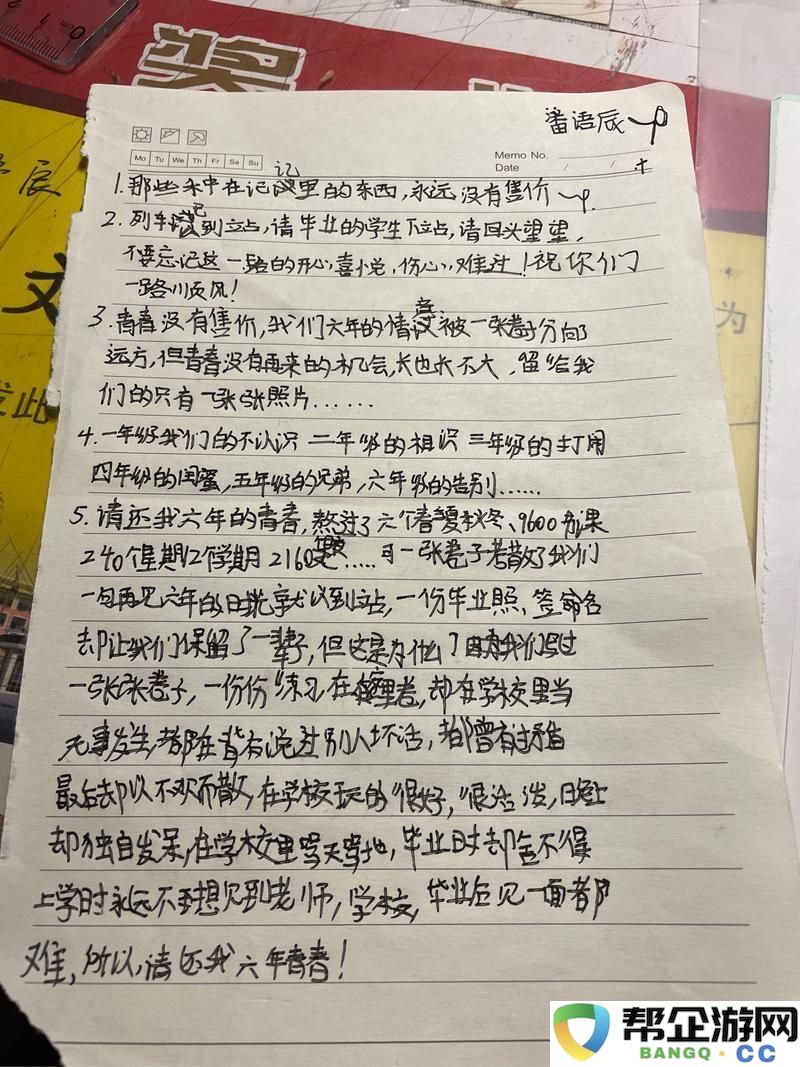 奖
文
为
发此
辰
番语辰
Mo Tu We Th Fr Sa Su
Memo No.
Date / /
记
1. 那些 在记 里的东西,永远没有售价
2. 列车 到立占,请毕业的学生下立占,请回头望望,
不要忘记这一路的开心,喜悦,伤心,难过!祝你们
一路川页风!
3. 青春没有售价,我们六年的情 被一张卷子分向
远方,但青春没有再来的机会,长也长不大,留给我
们的只有一张张照片……
4. 一年级我们的不认识 二年级的相识 三年级的打闹
四年级的闺蜜,五年级的兄弟,六年级的告别……
5. 请还我六年的青春,熬过了六个春夏秋冬、9600节课
240个星期12个学期 2160 …… 一张卷子考散了我们
一句再见六年的时光就以到立占,一份毕业照,签命名
却让我们保留了一辈子,但这是为什么?因为我们 过
一张张卷子,一份份练习 在 里卷,却在学校里当
无事发生,都在背有说过别人坏话,都曾有过矛盾
最后却以不欢而散,在学校玩的很好,很活泼,日晚上
却独自发呆,在学校里骂天骂地,毕业时却舍不得
上学时永远不想见到老师,学校,毕业后见一面都
难,所以,请还我六年青春!
帮企游网
BANGQ·CC